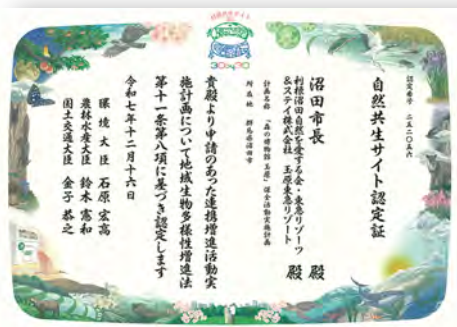 自然共生サイト認定証
認定番号 二五二〇五六
沼田市長 殿
利根沼田自然を愛する会・東急リゾーツ
&ステイ株式会社 玉原東急リゾート 殿
計画名称 「森の博物館 玉原」保全活動実施計画
所在地 群馬県沼田市
貴殿より申請のあった連携増進活動実
施計画について地域生物多様性増進法
第十一条第八項に基づき認定します
令和七年十二月十六日
環境大臣 石原宏高
農林水産大臣 鈴木憲和
国土交通大臣 金子恭之